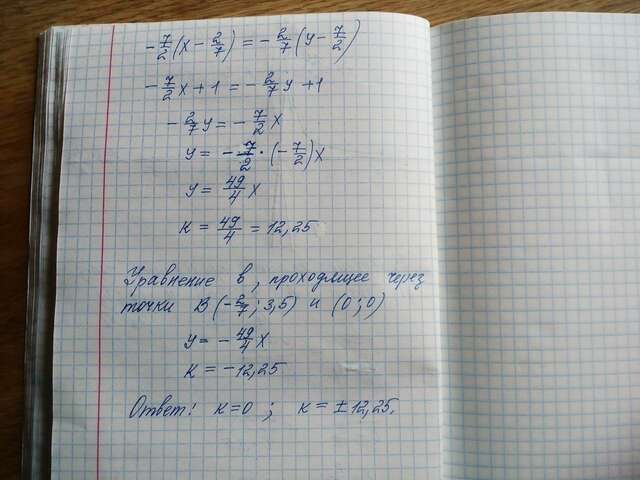 -7/2(x - 2/7) = -2/7(y - 7/2)
-7/2x + 1 = -2/7y + 1
-2/7y = -7/2x
y = -7/2 · (-7/2)x
y = 49/4x
к = 49/4 = 12,25
Уравнение в, проходящее через
точки В(-2/7; 3,5) и (0; 0)
y = -49/4x
к = -12,25
Ответ! к=0; к= ±12,25.